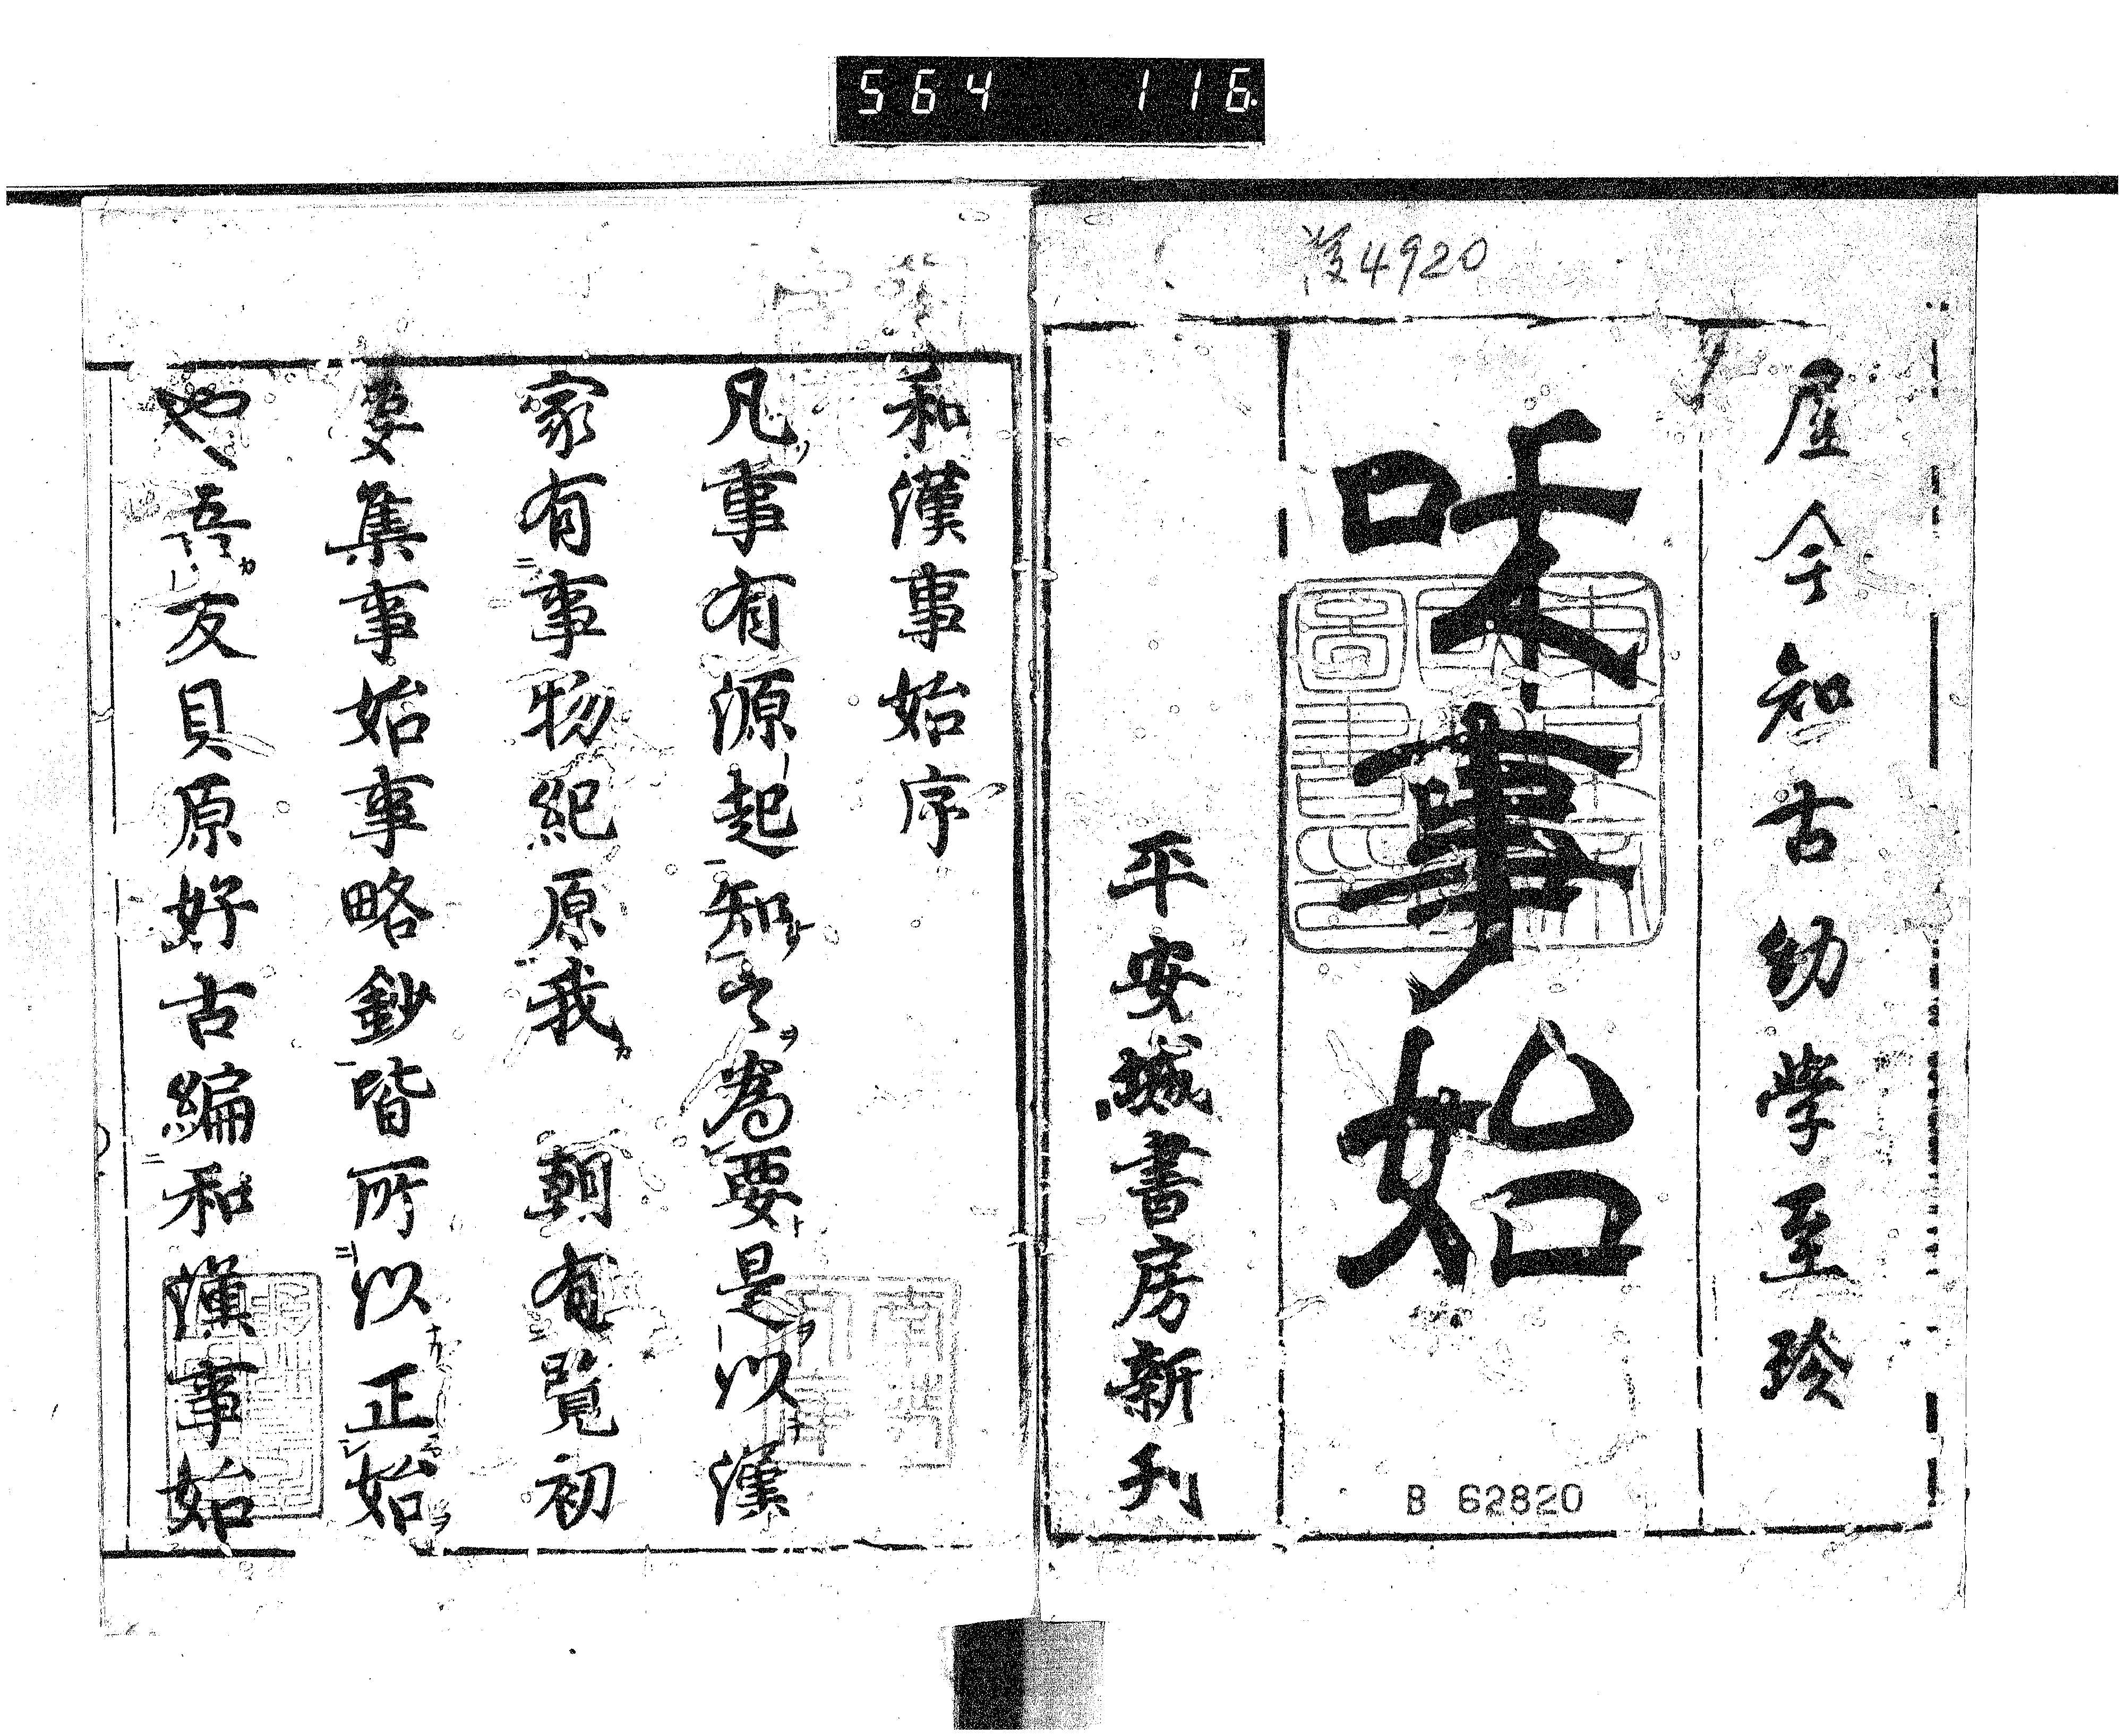 564 116
4920
居今知古幼学至珍
咊事始
平安城書房新刊
B 62820
和漢事始序
凡事有源起知之為要是以漢
家有事物紀原我 朝有覧初
要集事始事略鈔皆所以正始
也吾友貝原好古編和漢事始